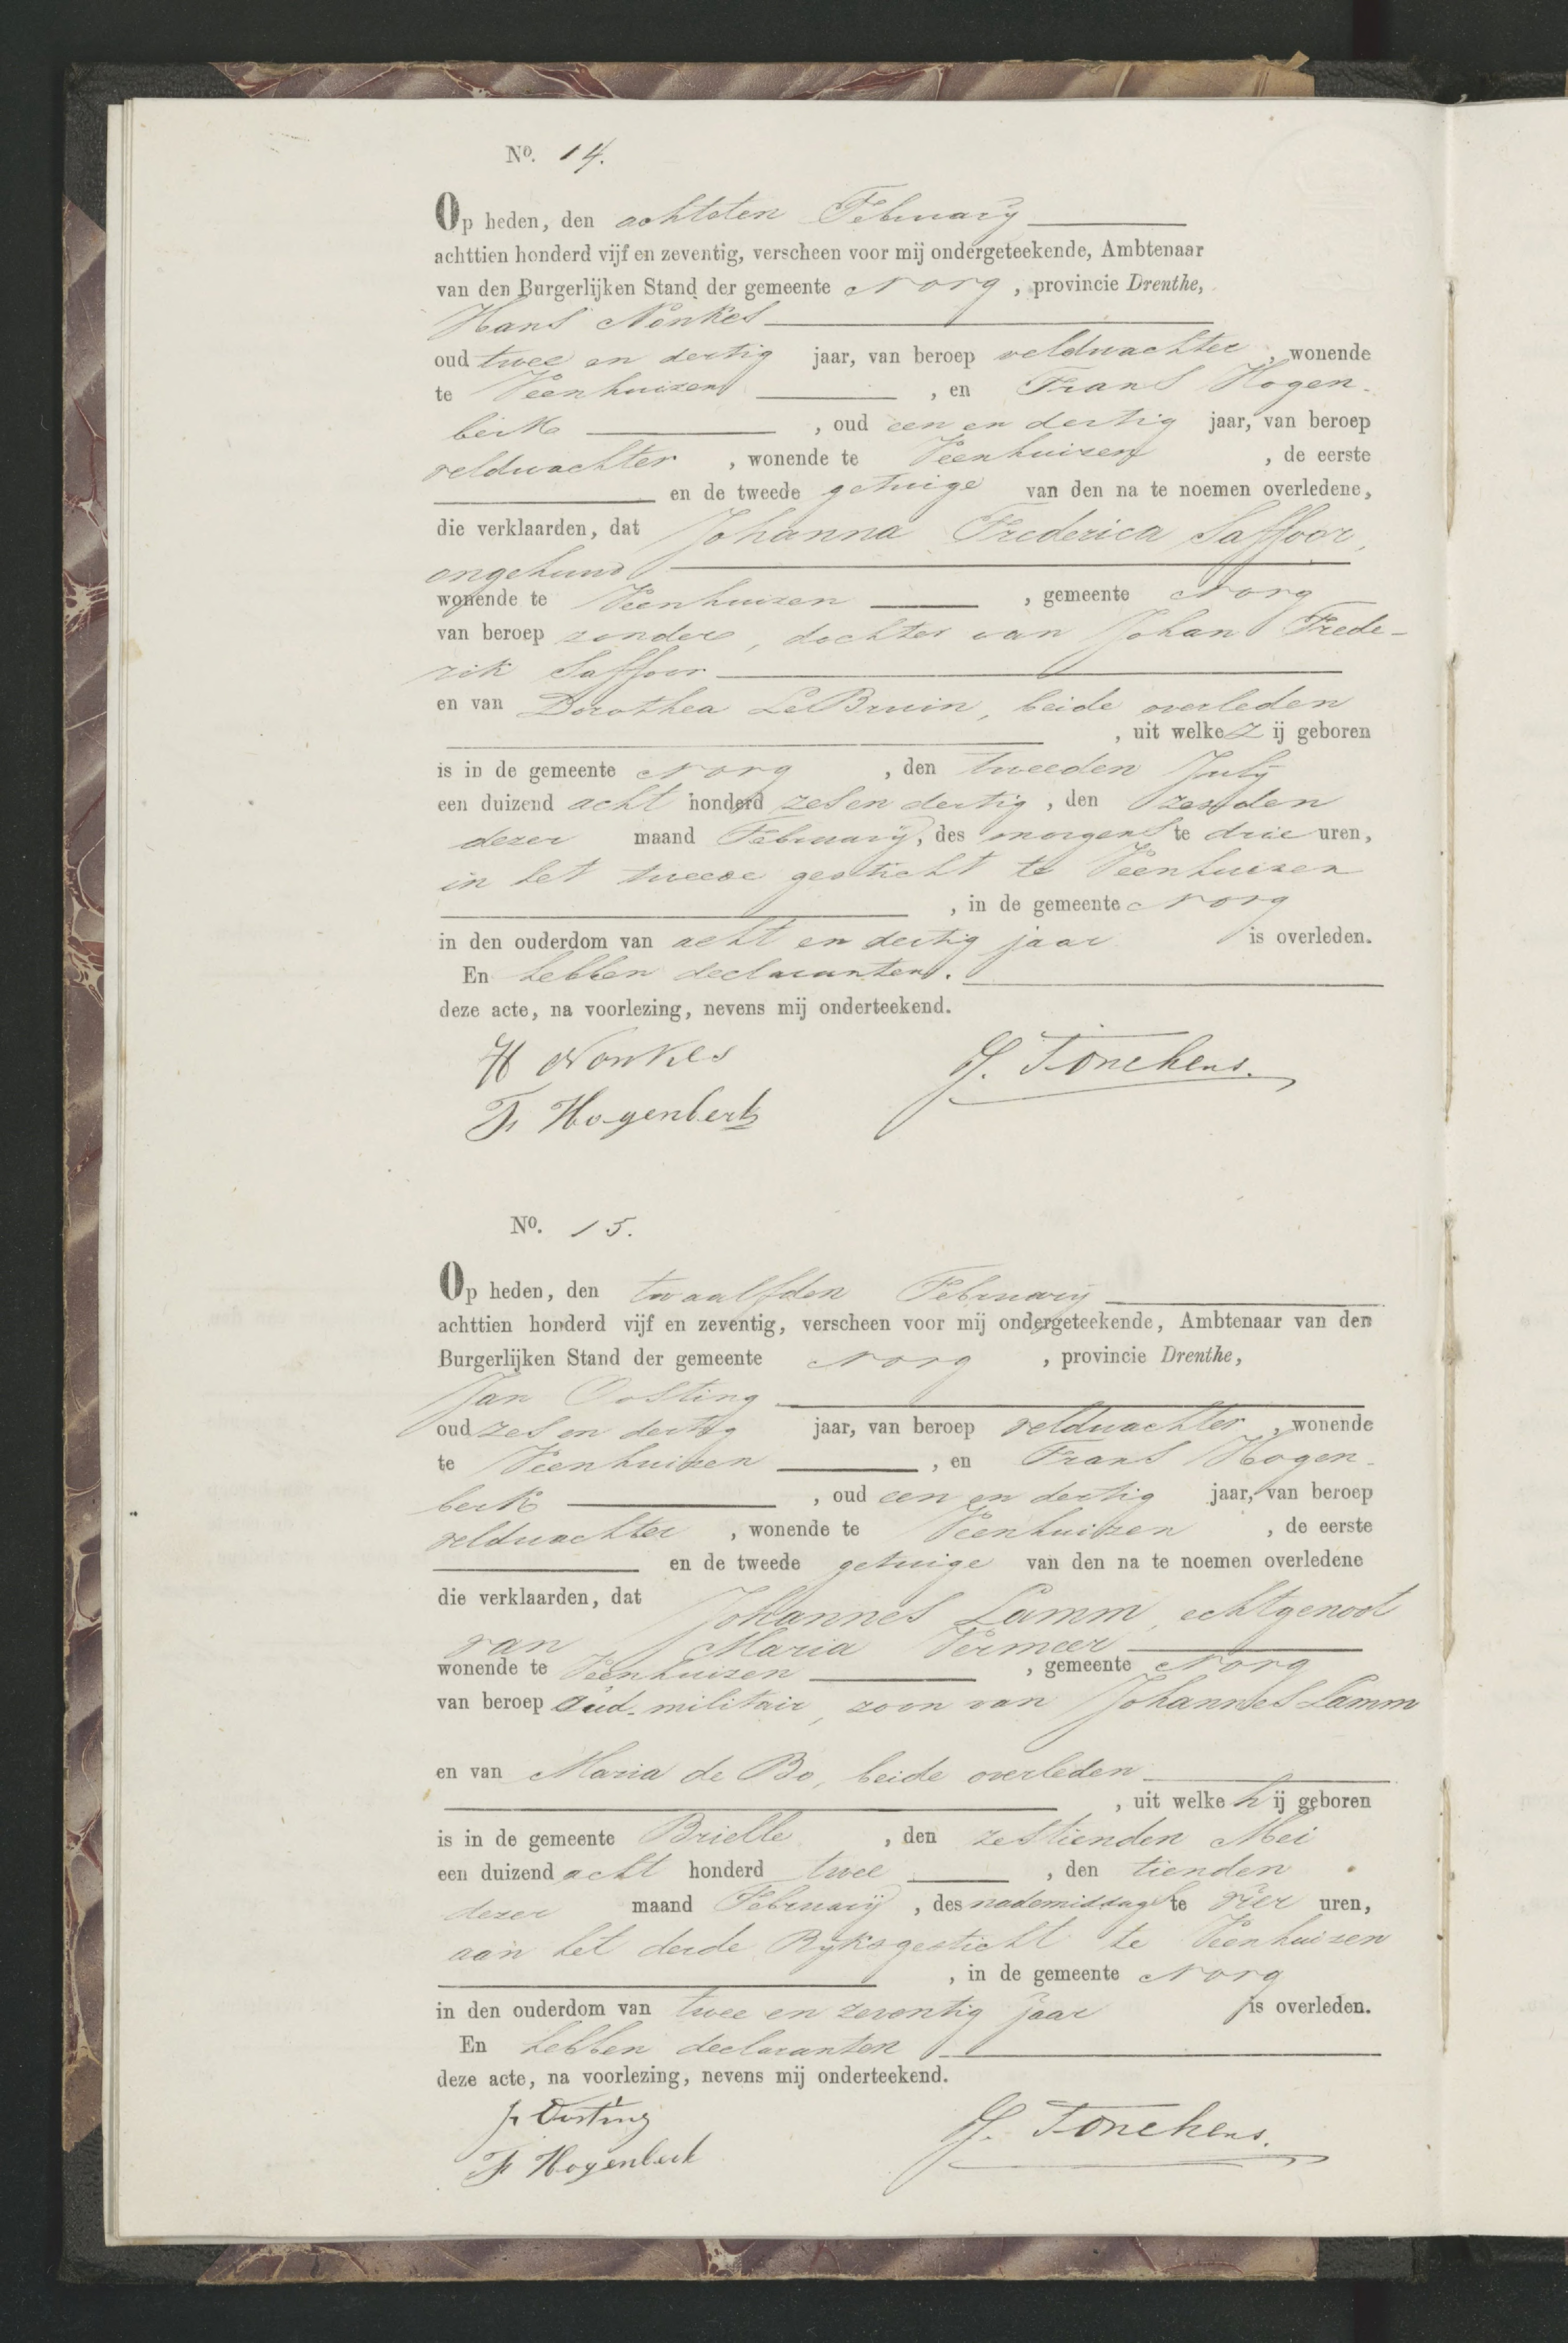 Nº. 14.
Op heden, den achtsten February
achttien honderd vijf en zeventig, verscheen voor mij ondergeteekende, Ambtenaar
van den Burgerlijken Stand der gemeente Norg, provincie Drenthe,
Hans Nonkes
oud twee en dertig jaar, van beroep veldwachter, wonende
te Veenhuizen, en Frans Hogen-
berk, oud een en dertig jaar, van beroep
veldwachter, wonende te Veenhuizen, de eerste
en de tweede getuige van den na te noemen overledene,
die verklaarden, dat Johanna Frederica Saffoor,
ongehuwd
wonende te Veenhuizen, gemeente Norg
van beroep zonder, dochter van Johan Frede-
rik Saffoor
en van Dorothea Le Bruin, beide overleden
, uit welke zij geboren
is in de gemeente Norg, den tweeden July
een duizend acht honderd zes en dertig, den zesden
dezer maand February, des morgens te drie uren,
in het tweede gesticht te Veenhuizen
, in de gemeente Norg
in den ouderdom van acht en dertig jaar is overleden.
En hebben declaranten.
deze acte, na voorlezing, nevens mij onderteekend.
H Nonkes
J. Tonckens.
F. Hogenberk
Nº. 15.
Op heden, den twaalfden February
achttien honderd vijf en zeventig, verscheen voor mij ondergeteekende, Ambtenaar van den
Burgerlijken Stand der gemeente Norg, provincie Drenthe,
Jan Oosting
oud zes en dertig jaar, van beroep veldwachter, wonende
te Veenhuizen, en Frans Hogen-
berk, oud een en dertig jaar, van beroep
veldwachter, wonende te Veenhuizen, de eerste
en de tweede getuige van den na te noemen overledene
die verklaarden, dat Johannes Lamm, echtgenoot
van Maria Vermeer
wonende te Veenhuizen, gemeente Norg
van beroep oud-militair, zoon van Johannes Lamm
en van Maria de Bo, beide overleden
, uit welke hij geboren
is in de gemeente Brielle, den zestienden Mei
een duizend acht honderd twee, den tienden
dezer maand February, des nademiddags te vier uren,
aan het derde Ryksgesticht te Veenhuizen
, in de gemeente Norg
in den ouderdom van twee en zeventig jaar is overleden.
En hebben declaranten
deze acte, na voorlezing, nevens mij onderteekend.
J. Oosting
J. Tonckens.
F Hogenberk